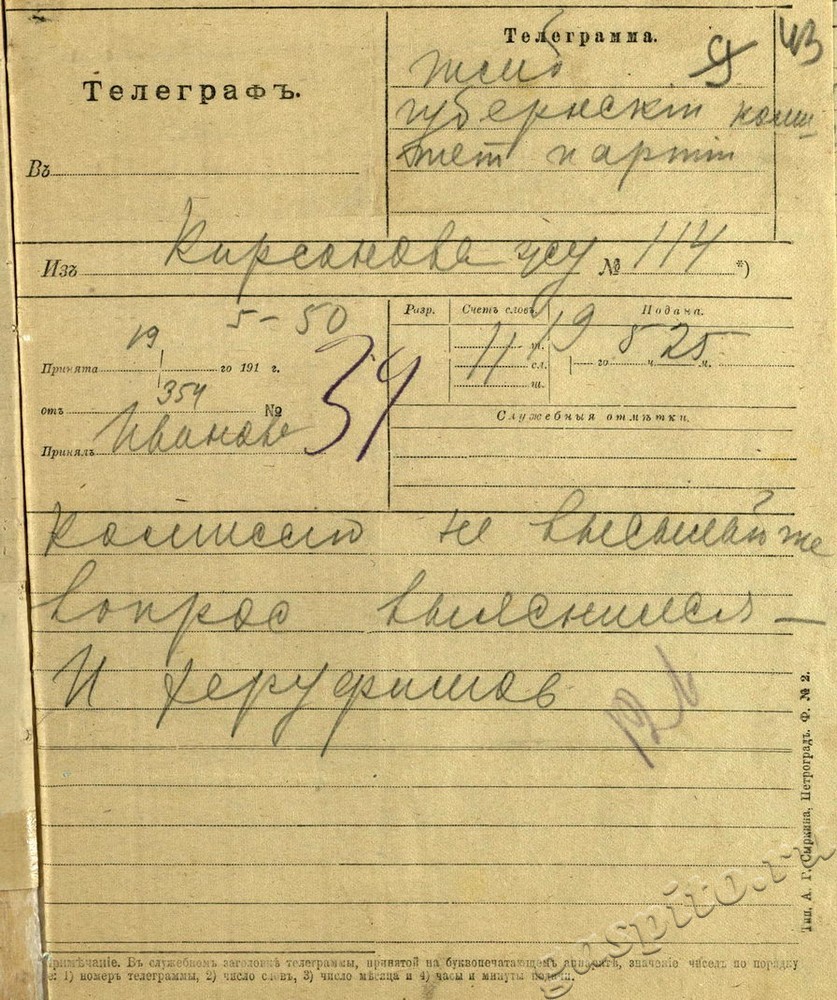 43
Телеграмма.
Телеграфъ.
губернскій коми
тет партіи
Въ
Изъ Кирсанова № 114 *)
5-50
Разр. Счетъ словъ. Подана.
19
Принята го 191 г.
11 сл. 19 го ч. 25 м.
ш.
354
отъ №
34
Служебныя отмѣтки.
Принялъ Иванова
Комиссию не высылайте
вопрос выяснился —
И
Примѣчаніе. Въ служебномъ заголовкѣ телеграммы, принятой на буквопечатающемъ аппаратѣ, значеніе чиселъ по порядку
1) номеръ телеграммы, 2) число словъ, 3) число мѣсяца и 4) часы и минуты подачи.
Тип. А. Г. Сыркина, Петроградъ. Ф. № 2.
gaspito.ru